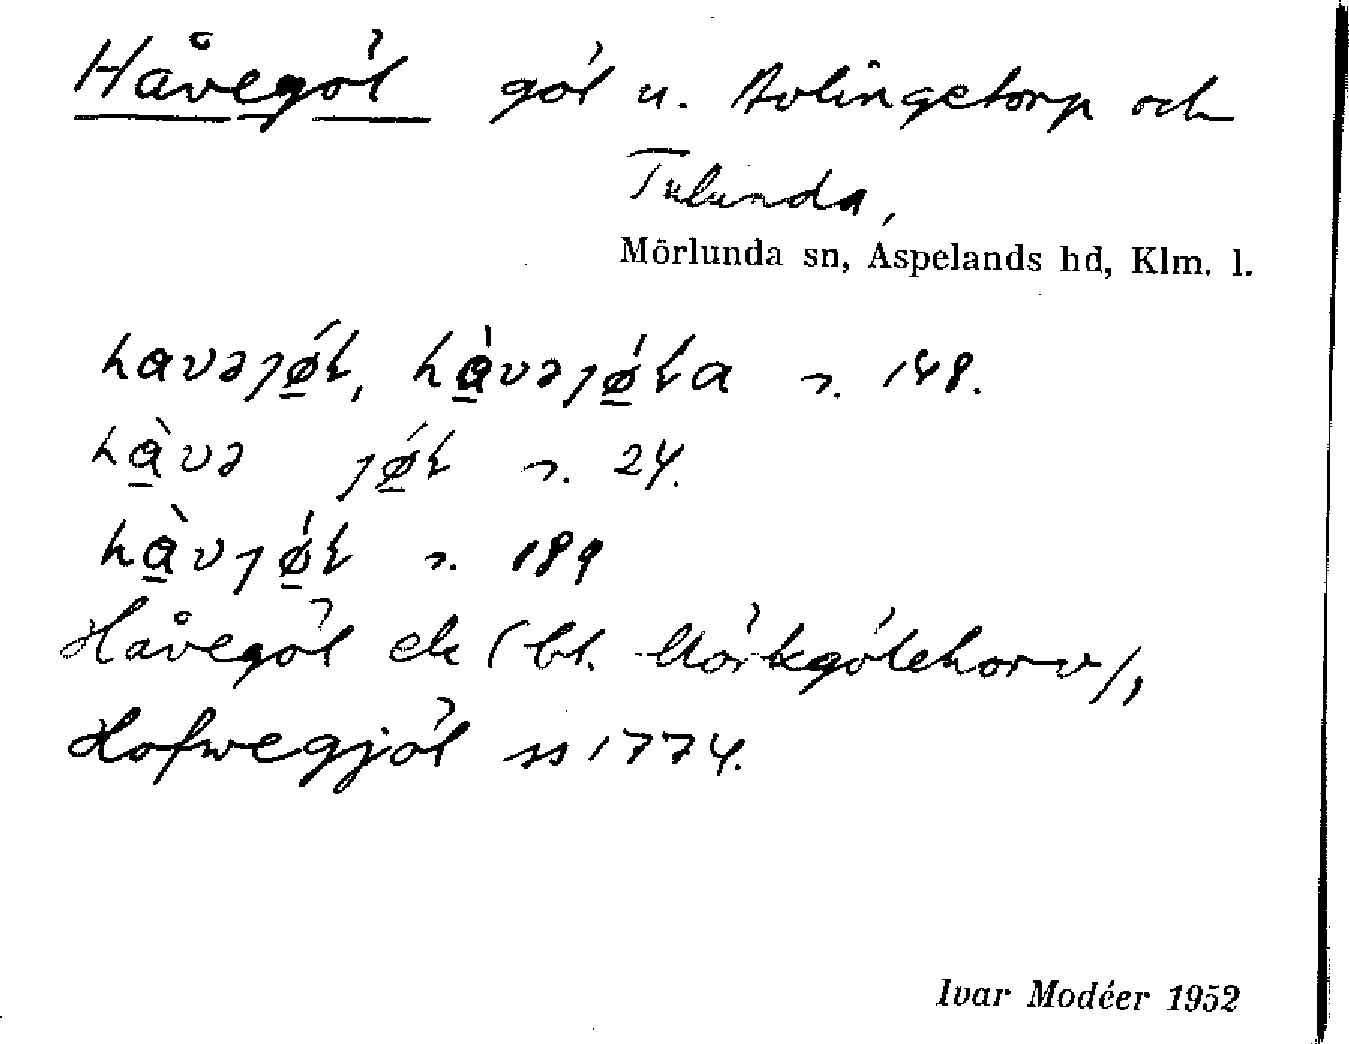 Håvegöl göl u. Avlingetorp och
Tulunda,
Mörlunda sn, Aspelands hd, Klm. l.
havəjø̱ɫ, hàvəjø̱ɫa s. 148.
hà̱və jø̱ɫ s. 24.
hà̱vjø̱ɫ s. 189
Håvegöl ek (bl. Mörkgölehorv),
Hofwegjöl ss 1774.
Ivar Modéer 1952